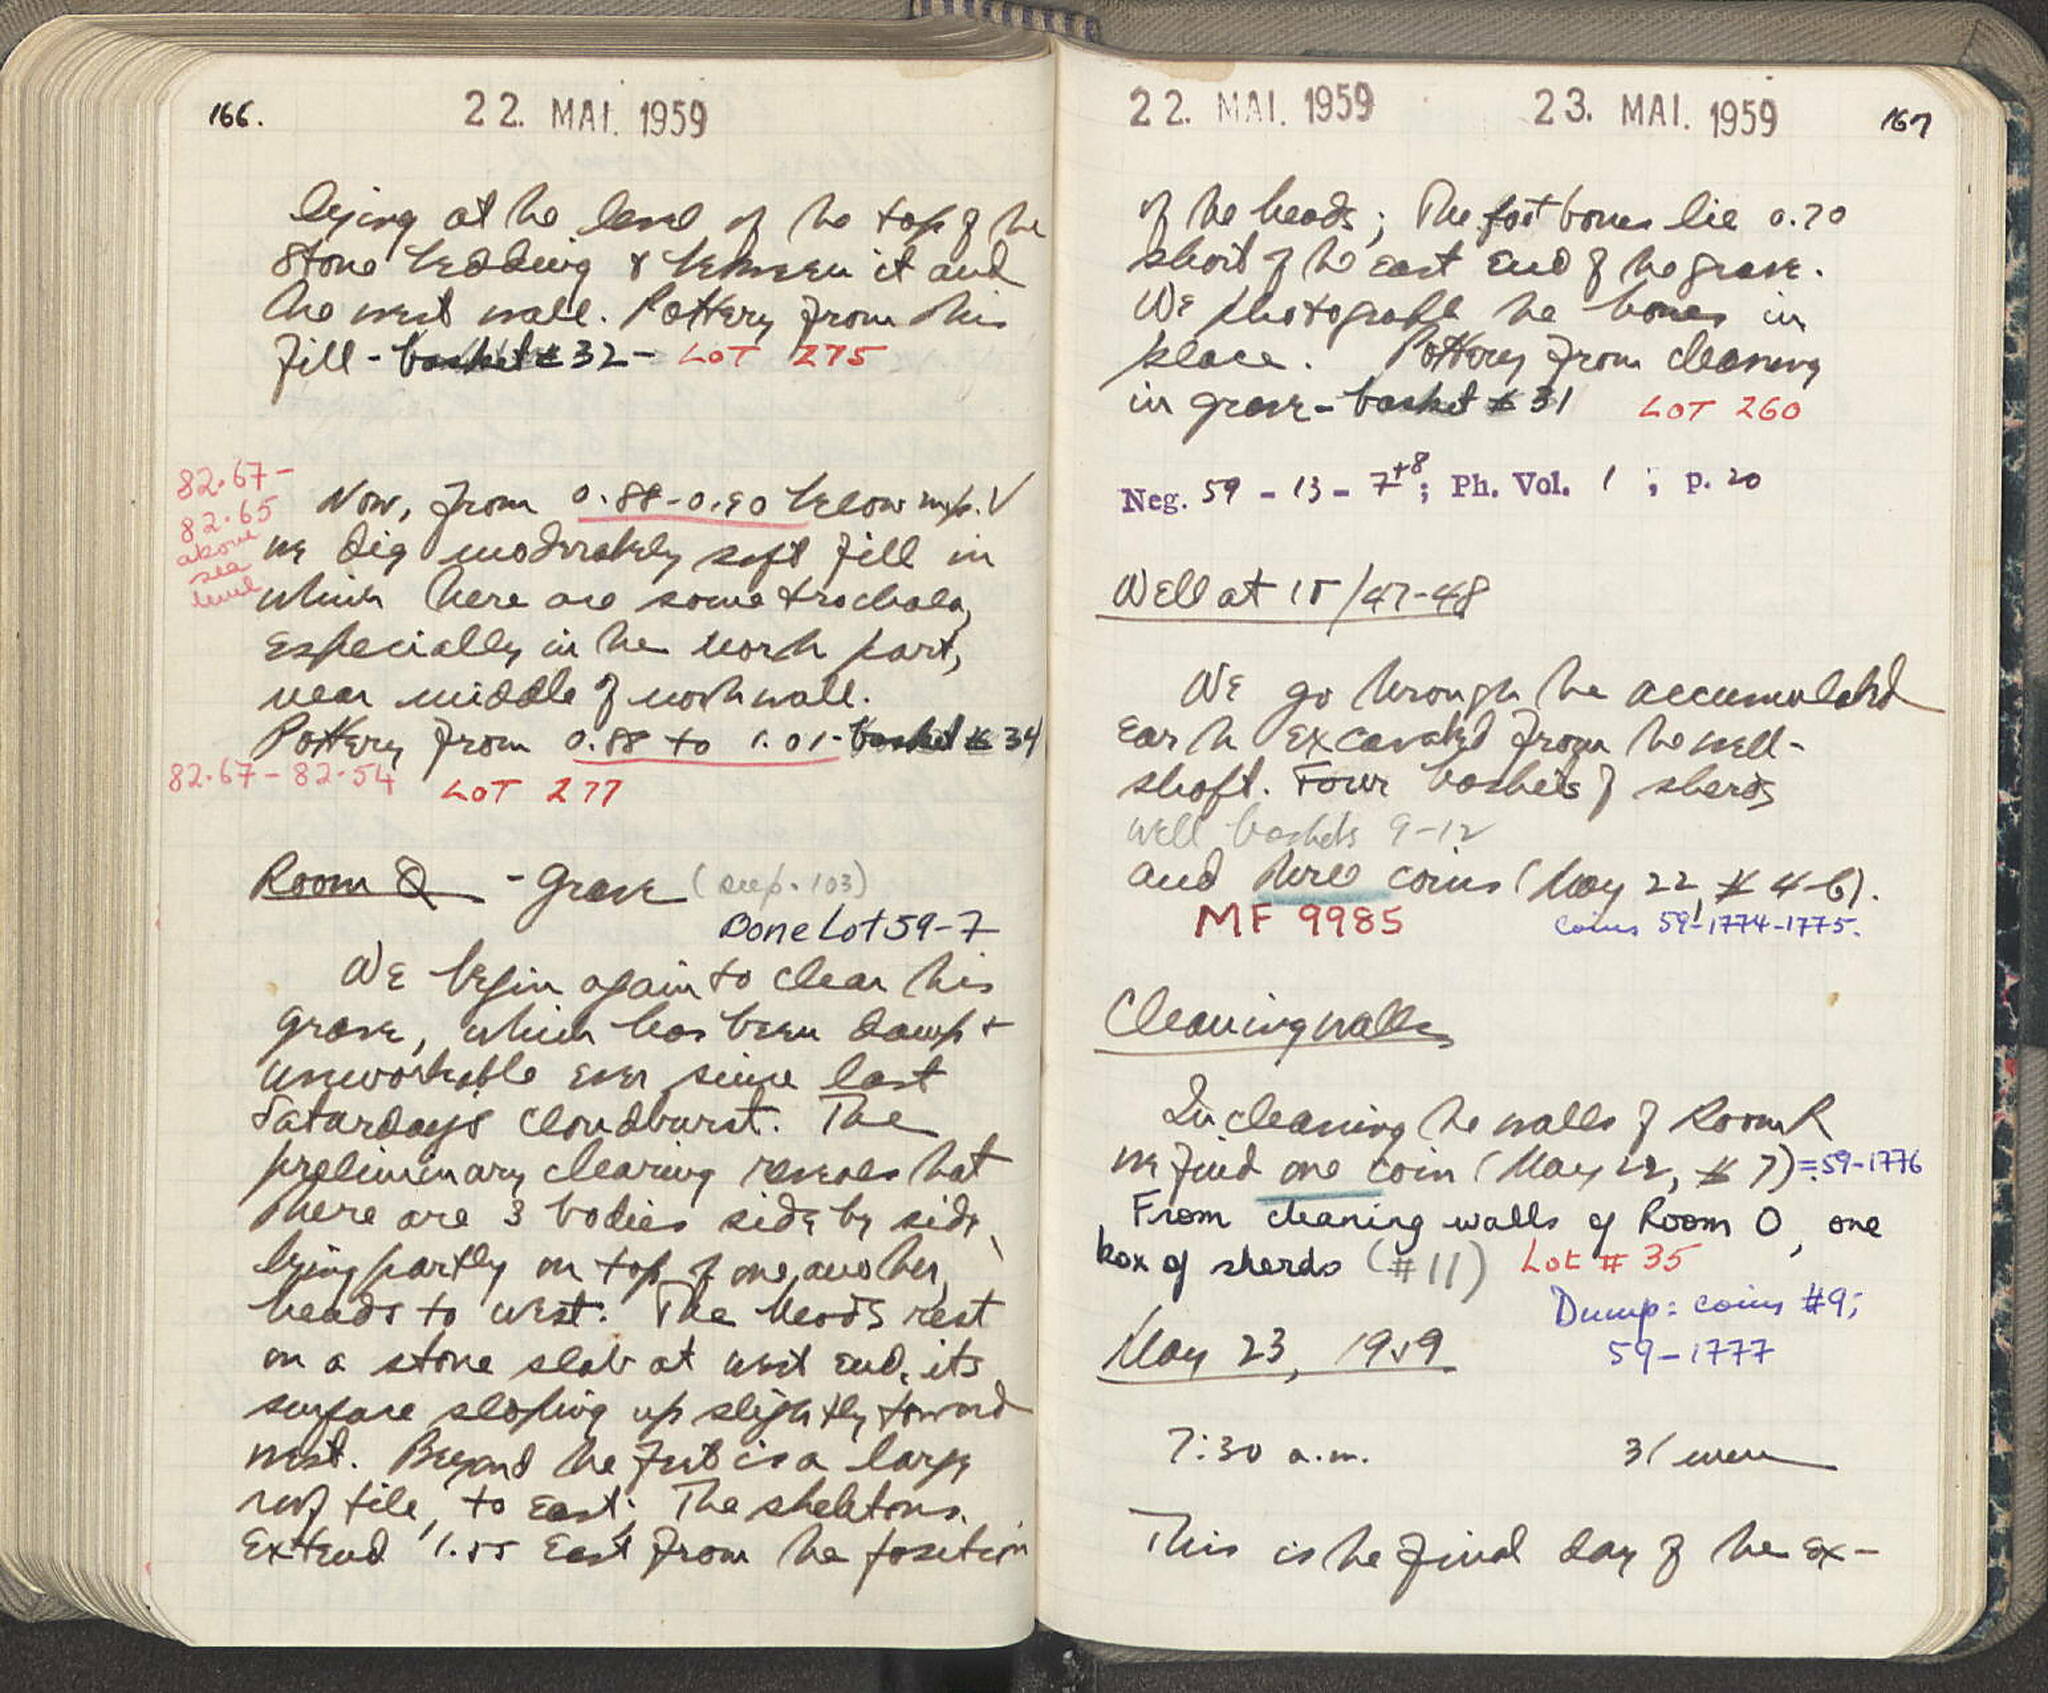 166.
22. MAI. 1959
lying at the level of the top of the
stone bedding & between it and
the west wall. Pottery from this
fill - basket # 32 - LOT 275
82.67-
82.65
above
sea
level
Now, from 0.88-0.90 below m.p. V
we dig moderately soft fill in
which there are some trochala,
especially in the north part,
near middle of north wall.
Pottery from 0.88 to 1.01 - basket # 34
82.67-82.54
LOT 277
Room Q - Grave (see p. 103)
Bone Lot 59-7
We begin again to clear this
grave, which has been damp &
unworkable ever since last
Saturday's cloudburst. The
preliminary clearing reveals that
there are 3 bodies side by side,
lying partly on top of one another,
heads to west. The heads rest
on a stone slab at west end, its
surface sloping up slightly toward
west. Beyond the feet is a large
roof tile, to east. The skeletons
extend 1.55 east from the position
22. MAI. 1959
23. MAI. 1959
167
of the heads; The foot bones lie 0.70
short of the east end of the grave.
We photograph the bones in
place. Pottery from cleaning
in grave - basket # 31 LOT 260
Neg. 59 - 13 - 7+8; Ph. Vol. 1 ; p. 20
Well at 15/47-48
We go through the accumulated
earth excavated from the well-
shaft. Four baskets of sherds
well baskets 9-12
and three coins (May 22, # 4-6).
MF 9985
coins 59-1774-1775.
Cleaning walls
In cleaning the walls of Room R
we find one coin (May 22, # 7) = 59-1776
From cleaning walls of Room O, one
box of sherds (#11) Lot # 35
Dump: coins #9;
59-1777
May 23, 1959
7:30 a.m. 31 men
This is the final day of the ex-